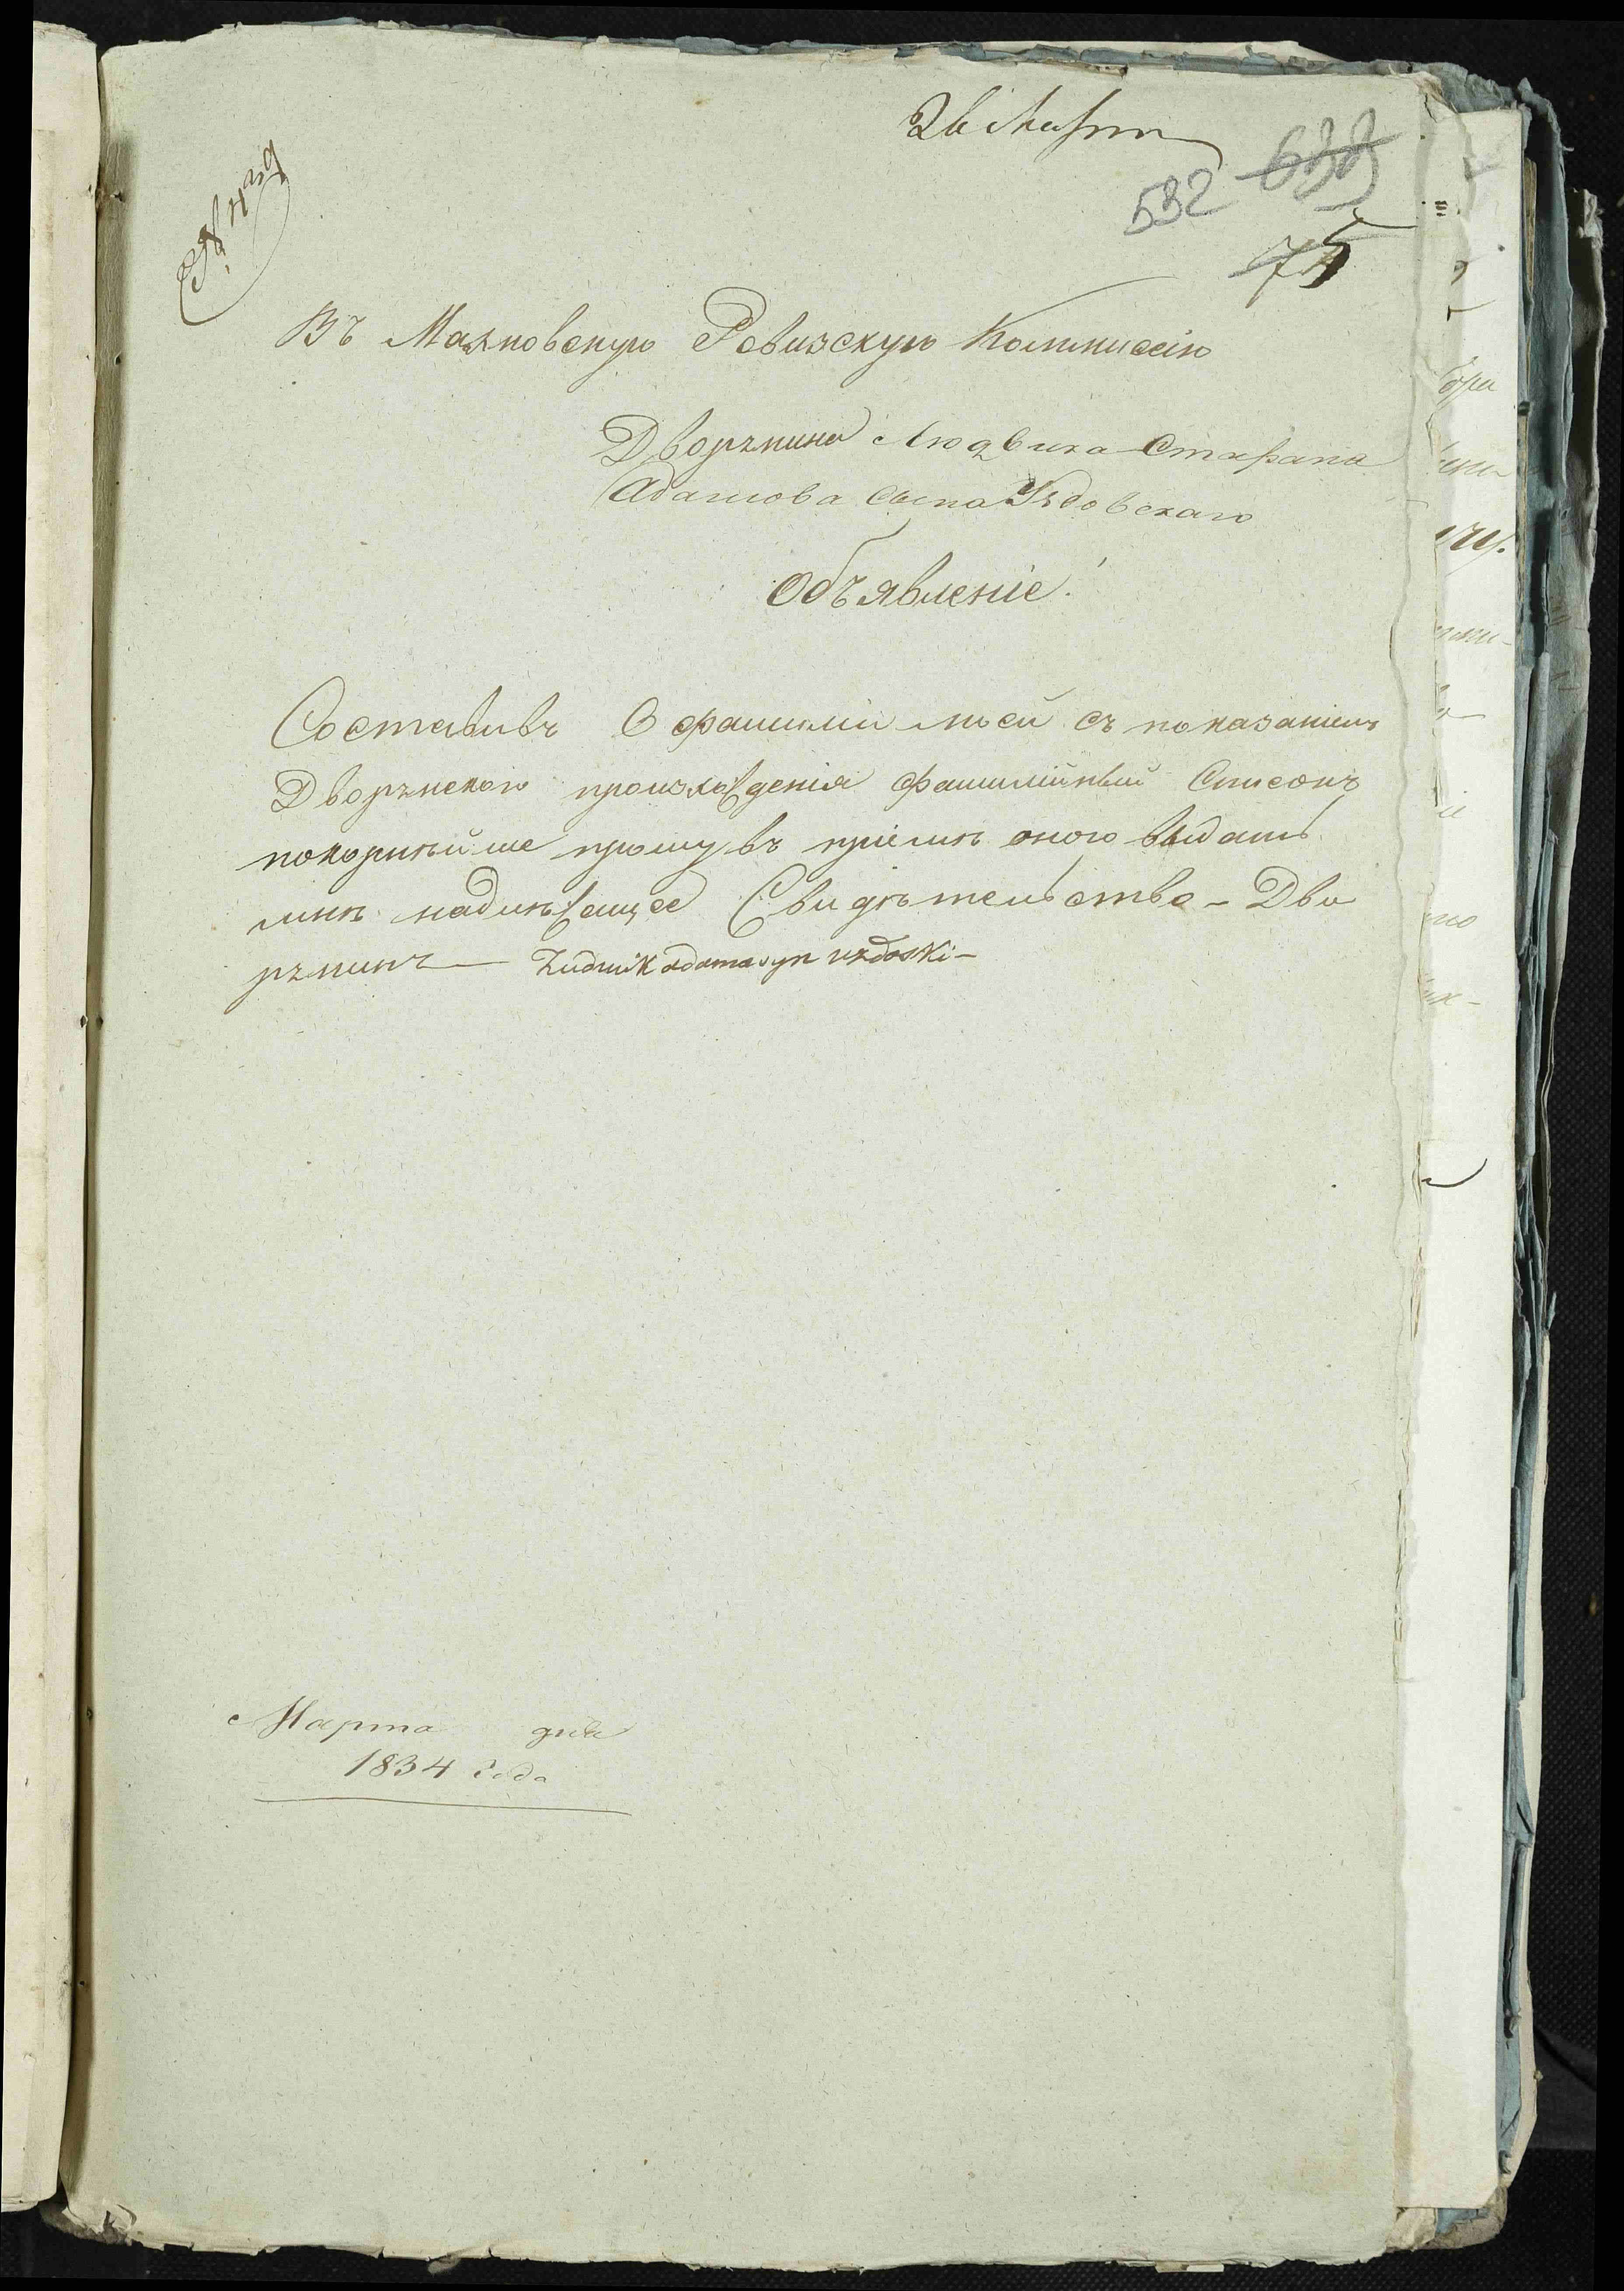 26 Марта
№ 439
532 633
75
Въ Маяковскую Ревизскую Коммиссію
Дворянина Людвика Старана
Адамова сына Уздовскаго
Объявленіе!
Составивъ О фамиліи моей съ показаніемъ
Дворянскаго происхожденія фамилійный Списокъ
покорнѣйше прошу въ пріемѣ оного выдать
мнѣ надлежащее Свидѣтельство - Дво
рянинъ — Ludwik adama syn uzdoski -
Марта дня
1834 года